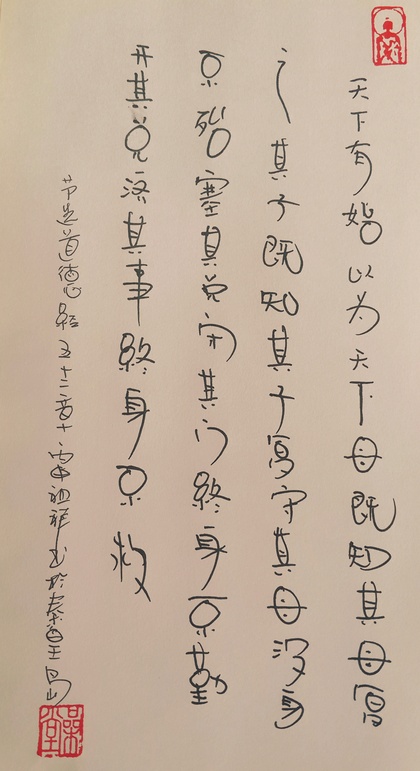 天下有始以为天下母既知其母复
其子既知其子复守其母没身
不殆塞其兑闭其门終身不勤
开其兑济其事終身不救
节选道德經五十二章 雷祖祥书於秦皇岛